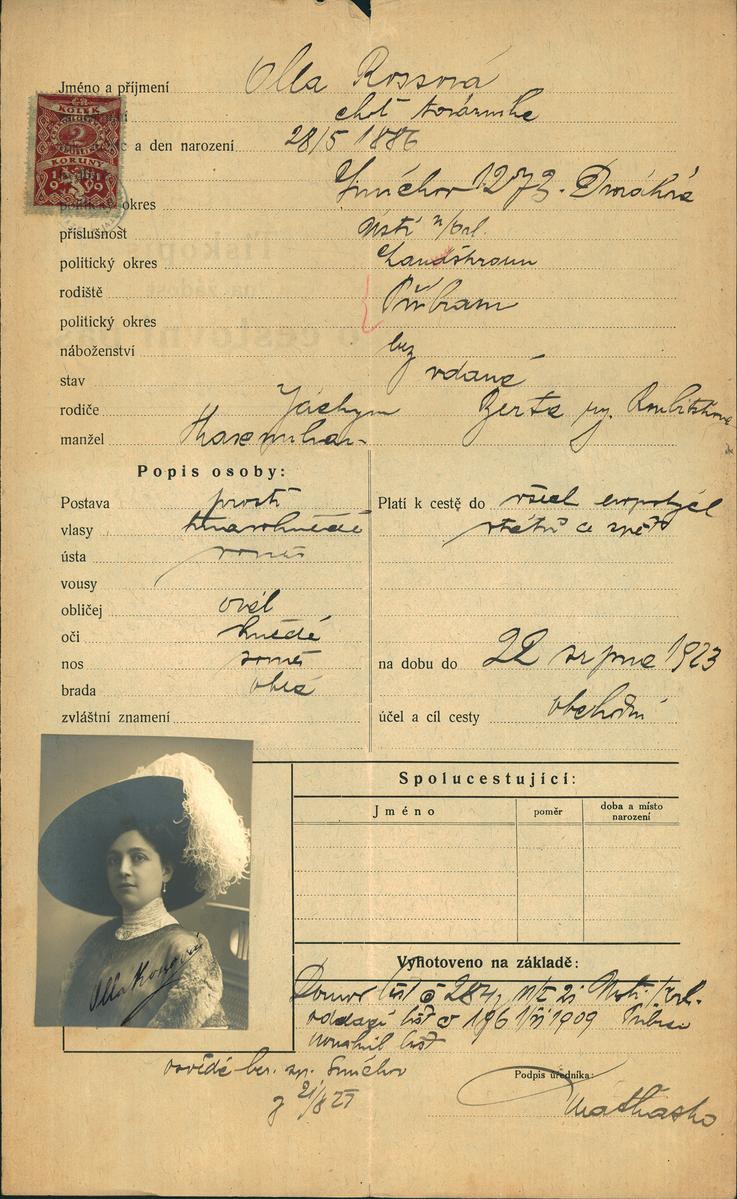 Jméno a příjmení Olla Rossová
choť továrníka
a den narození 28/5 1886
KOLEK
2
KORUNY
1919
politický okres Smíchov 1273.
příslušnost Ústí n/Orl.
politický okres Landškroun
rodiště Příbram
politický okres
náboženství bez
stav vdaná
rodiče Jáchym Berta
manžel Maxmilian
Popis osoby:
Postava prostř
vlasy tmavohnědé
ústa souměr
vousy
obličej ovál
oči hnědé
nos souměr
brada oblá
zvláštní znamení
Platí k cestě do všech evropských
států a zpět
na dobu do 22 srpna 1923
účel a cíl cesty obchodní
Spolucestující:
Jméno poměr doba a místo narození
Olla Rossová
Vyhotoveno na základě:
Domov. list č 284, Ústí n/Orl.
oddací list č 196 1909
souhlas
ber. sp. Smíchov
z 21/8
Podpis úředníka: